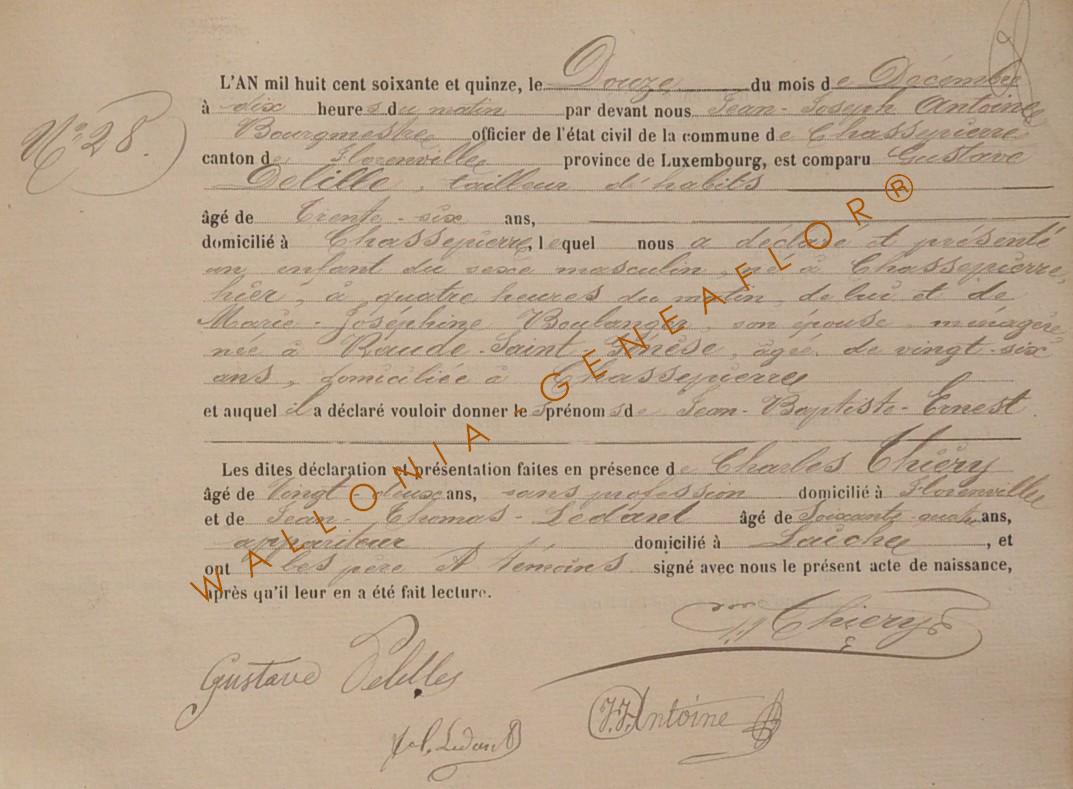 L'AN mil huit cent soixante et quinze, le Douze du mois de Décembre
N° 28.
à dix heures du matin par devant nous Jean-Joseph Antoine
Bourgmestre officier de l'état civil de la commune de Chassepierre
canton de Florenville province de Luxembourg, est comparu Gustave
Delille, tailleur d'habits
âgé de trente-six ans,
domicilié à Chassepierre, lequel nous a déclaré et présenté
un enfant du sexe masculin, né à Chassepierre,
hier, à quatre heures du matin, de lui et de
Marie-Joséphine Boulanger, son épouse, ménagère
née à Rhode-Saint Genèse, âgée de vingt-six
ans, domiciliée à Chassepierre
et auquel il a déclaré vouloir donner les prénoms de Jean-Baptiste-Ernest.
Les dites déclaration et présentation faites en présence de Charles Thiéry
âgé de Vingt-deux ans, sans profession domicilié à Florenville
et de Jean-Thomas-Ledant âgé de Soixante-quatre ans,
appariteur domicilié à Laiche, et
ont les père et témoins signé avec nous le présent acte de naissance,
après qu'il leur en a été fait lecture.
Thiery
Gustave Delille
J.J. Antoine
Ledant
WALLONIA-GENEAFLOR®